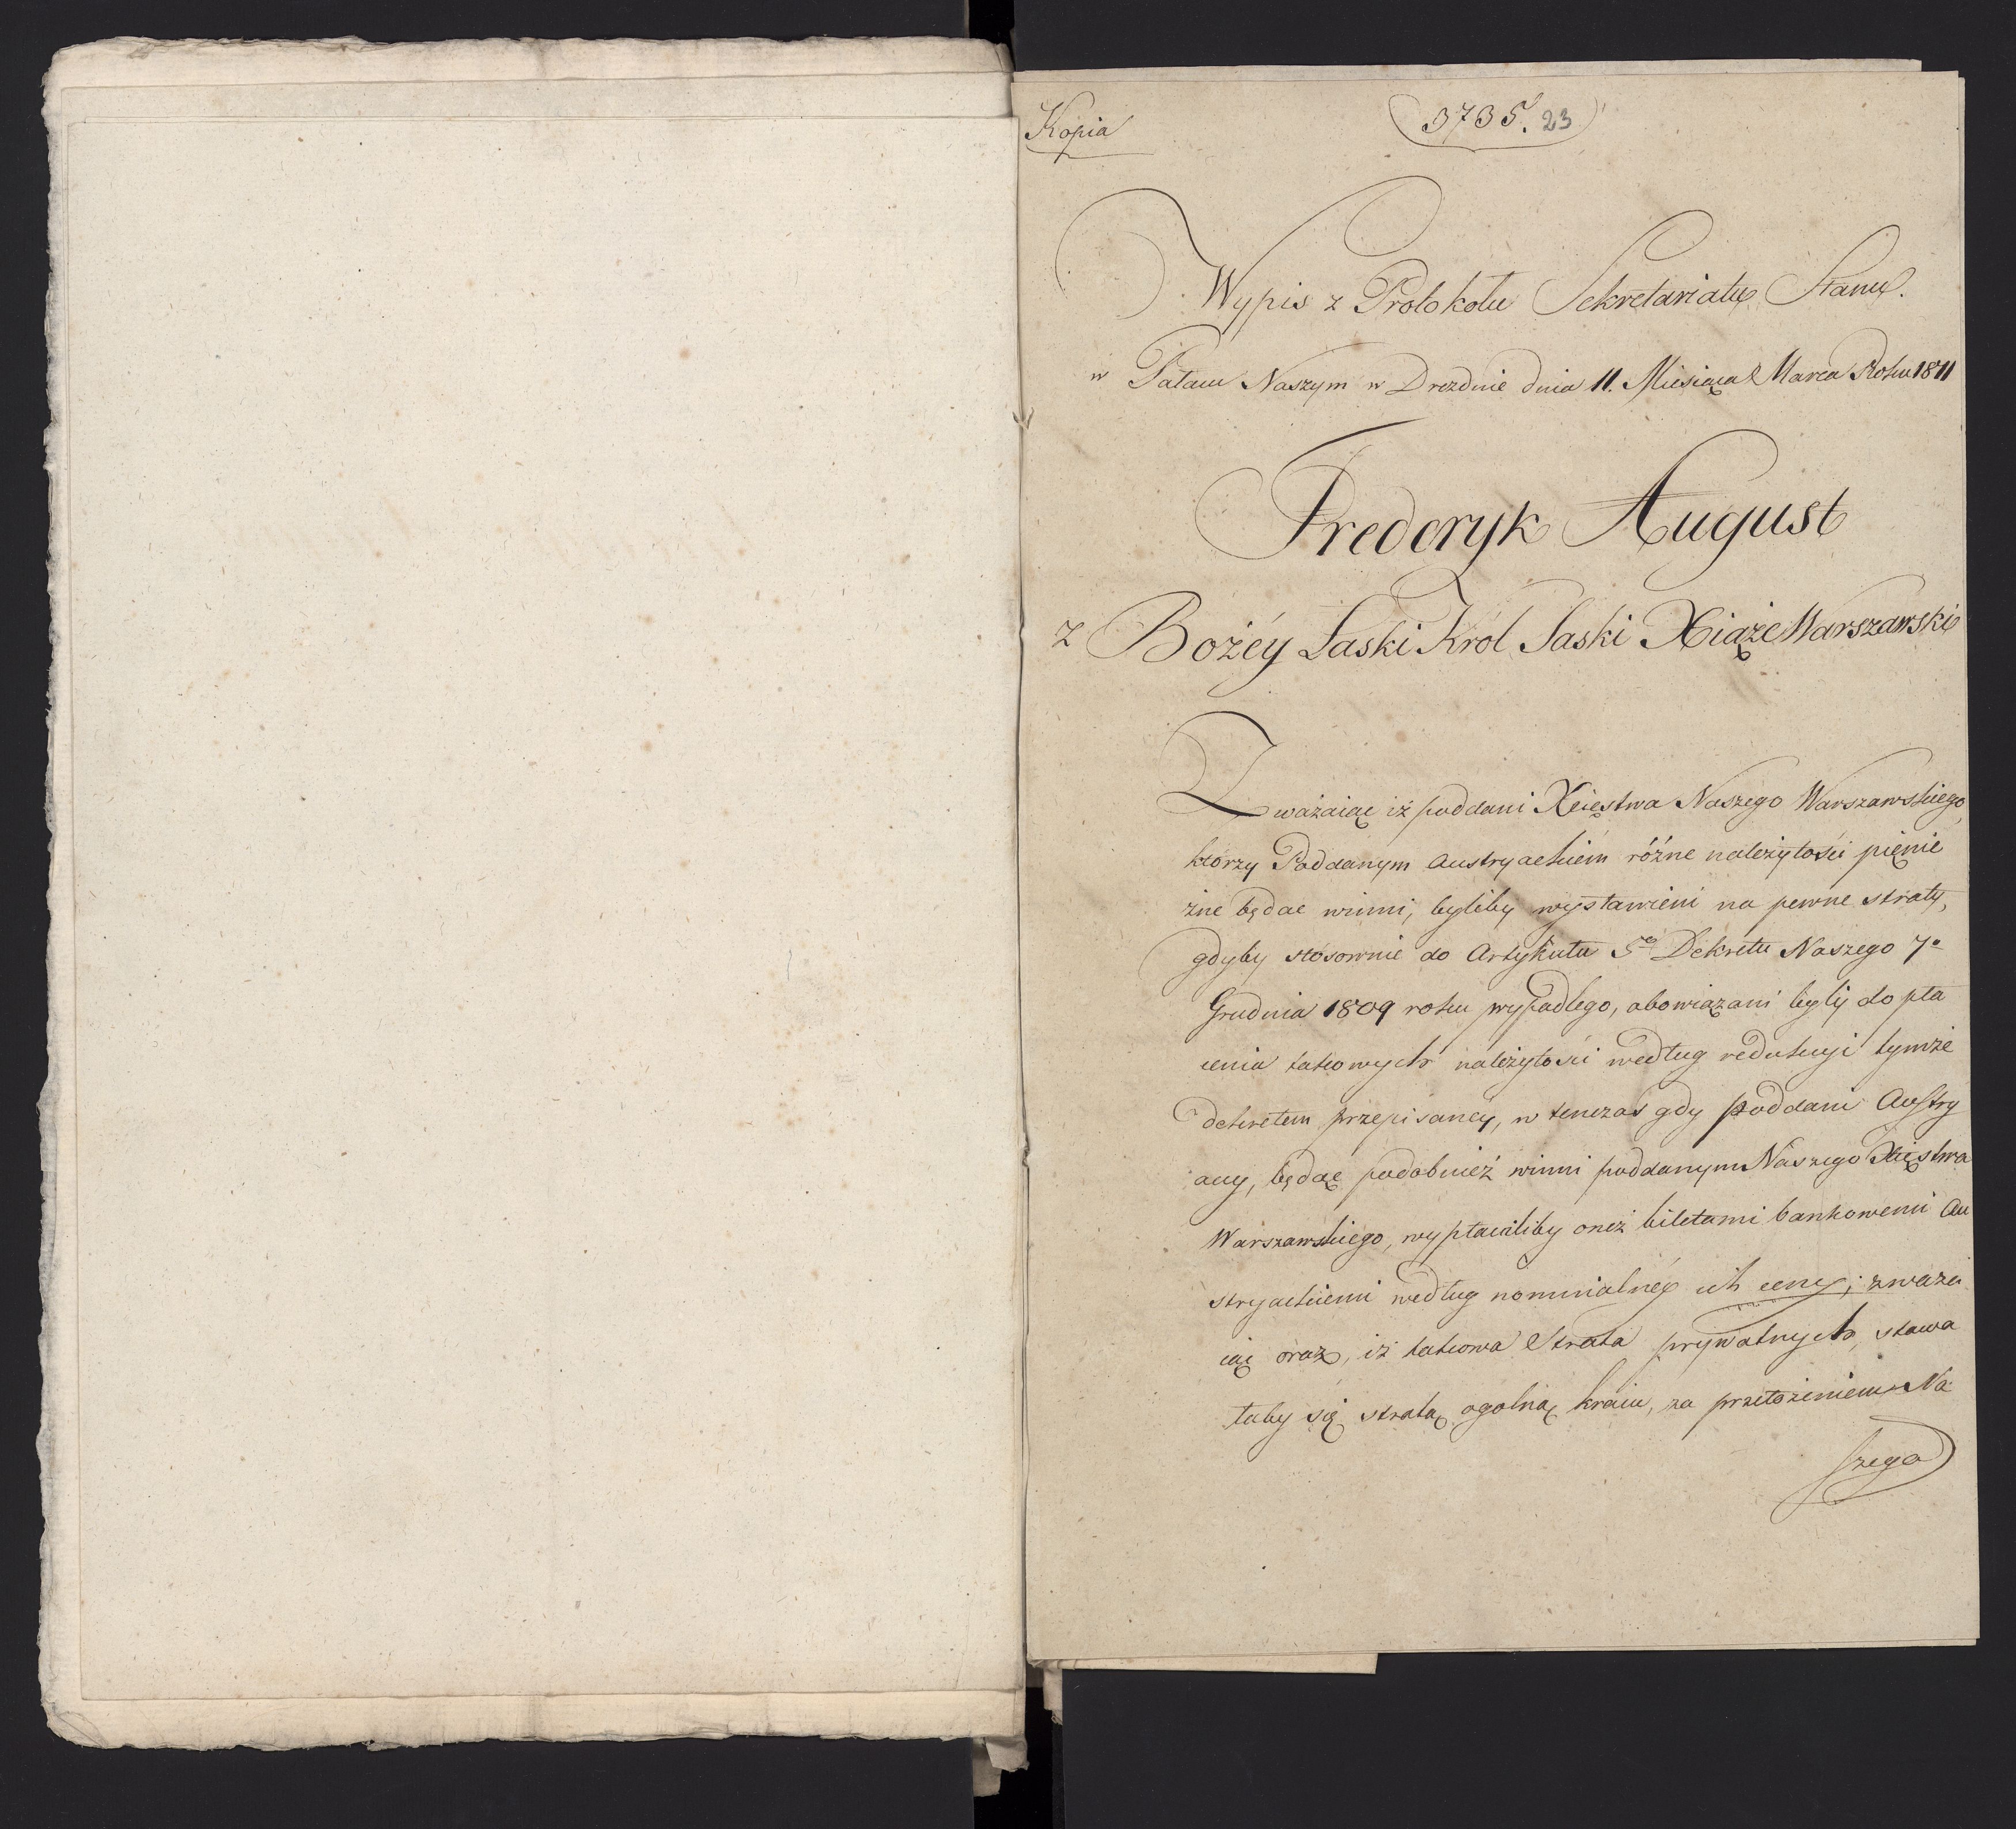 Kopia
3735. 23
Wypis z Protokołu Sekretariatu Stanu.
w Pałacu Naszym w Dreźdnie dnia 11. Miesiąca Marca Roku 1811
Frederyk August
z Bożey Łaski Krol Saski Xiąże Warszawski
Zważaiąc iż poddani Xięstwa Naszego Warszawskiego,
którzy Poddanym Austryackiem różne należytości pienię
żne będąc winni, byliby wystawieni na pewne straty,
gdyby stosownie do Artykułu 5go Dekretu Naszego 7o
Grudnia 1809 roku wypadłego, obowiązani byli do pła
cenia takowych należytości według redukcyi tymże
dekretem przepisaney, w tenczas gdy poddani Austry
accy, będąc podobnież winni poddanym Naszego Xięstwa
Warszawskiego, wypłaciliby onéż biletami bankowemi Au
stryackiemi według nominialney ich ceny; zważa
iąc oraz, iż takowa Strata prywatnych, stawa
łaby się stratą ogolną kraiu, za przełożeniem Na
szego